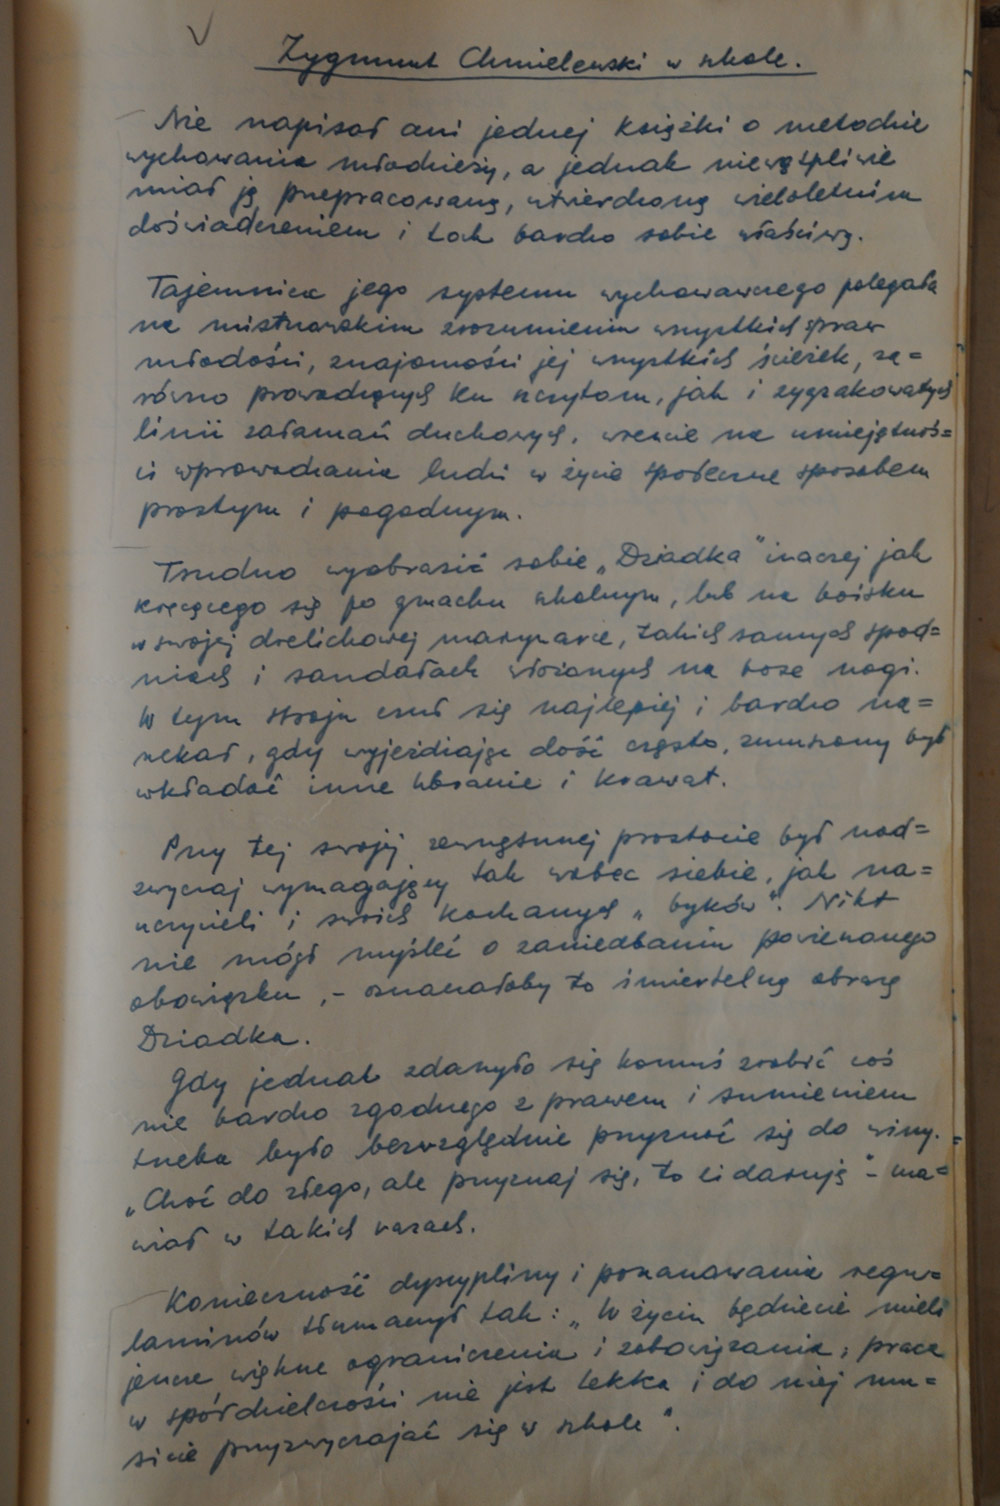 Zygmunt Chmielewski w szkole.
Nie napisał ani jednej książki o metodzie
wychowania młodzieży, a jednak niewątpliwie
miał ją przepracowaną, utwierdzoną wieloletnim
doświadczeniem i tak bardzo sobie właściwą.
Tajemnica jego systemu wychowawczego polegała
na mistrzowskim zrozumieniu wszystkich spraw
młodości, znajomości jej wszystkich ścieżek, za=
równo prowadzących ku szczytom, jak i zygzakowatych
linii załamań duchowych, wreszcie na umiejętnoś=
ci wprowadzania ludzi w życie społeczne sposobem
prostym i pogodnym.
Trudno wyobrazić sobie „Dziadka" inaczej jak
kręcącego się po gmachu szkolnym, lub na boisku
w swojej drelichowej marynarce, takich samych spod=
niach i sandałach włożonych na bose nogi.
W tym stroju czuł się najlepiej i bardzo na=
rzekał, gdy wyjeżdżając dość często, zmuszony był
wkładać inne ubranie i krawat.
Przy tej swojej zewnętrznej prostocie był nad=
zwyczaj wymagający tak wobec siebie, jak na=
uczycieli i swoich kochanych „byków". Nikt
nie mógł myśleć o zaniedbaniu powierzonego
obowiązku, - oznaczałoby to śmiertelną obrazę
Dziadka.
Gdy jednak zdarzyło się komuś zrobić coś
nie bardzo zgodnego z prawem i sumieniem
trzeba było bezwzględnie przyznać się do winy.
„Choć do złego, ale przyznaj się, to ci daruję" - ma=
wiał w takich razach.
Konieczność dyscypliny i poszanowania regu=
laminów tłumaczył tak: „W życiu będziecie mieli
jeszcze większe ograniczenia i zobowiązania; praca
w spółdzielczości nie jest lekka i do niej mu=
sicie przyzwyczajać się w szkole".